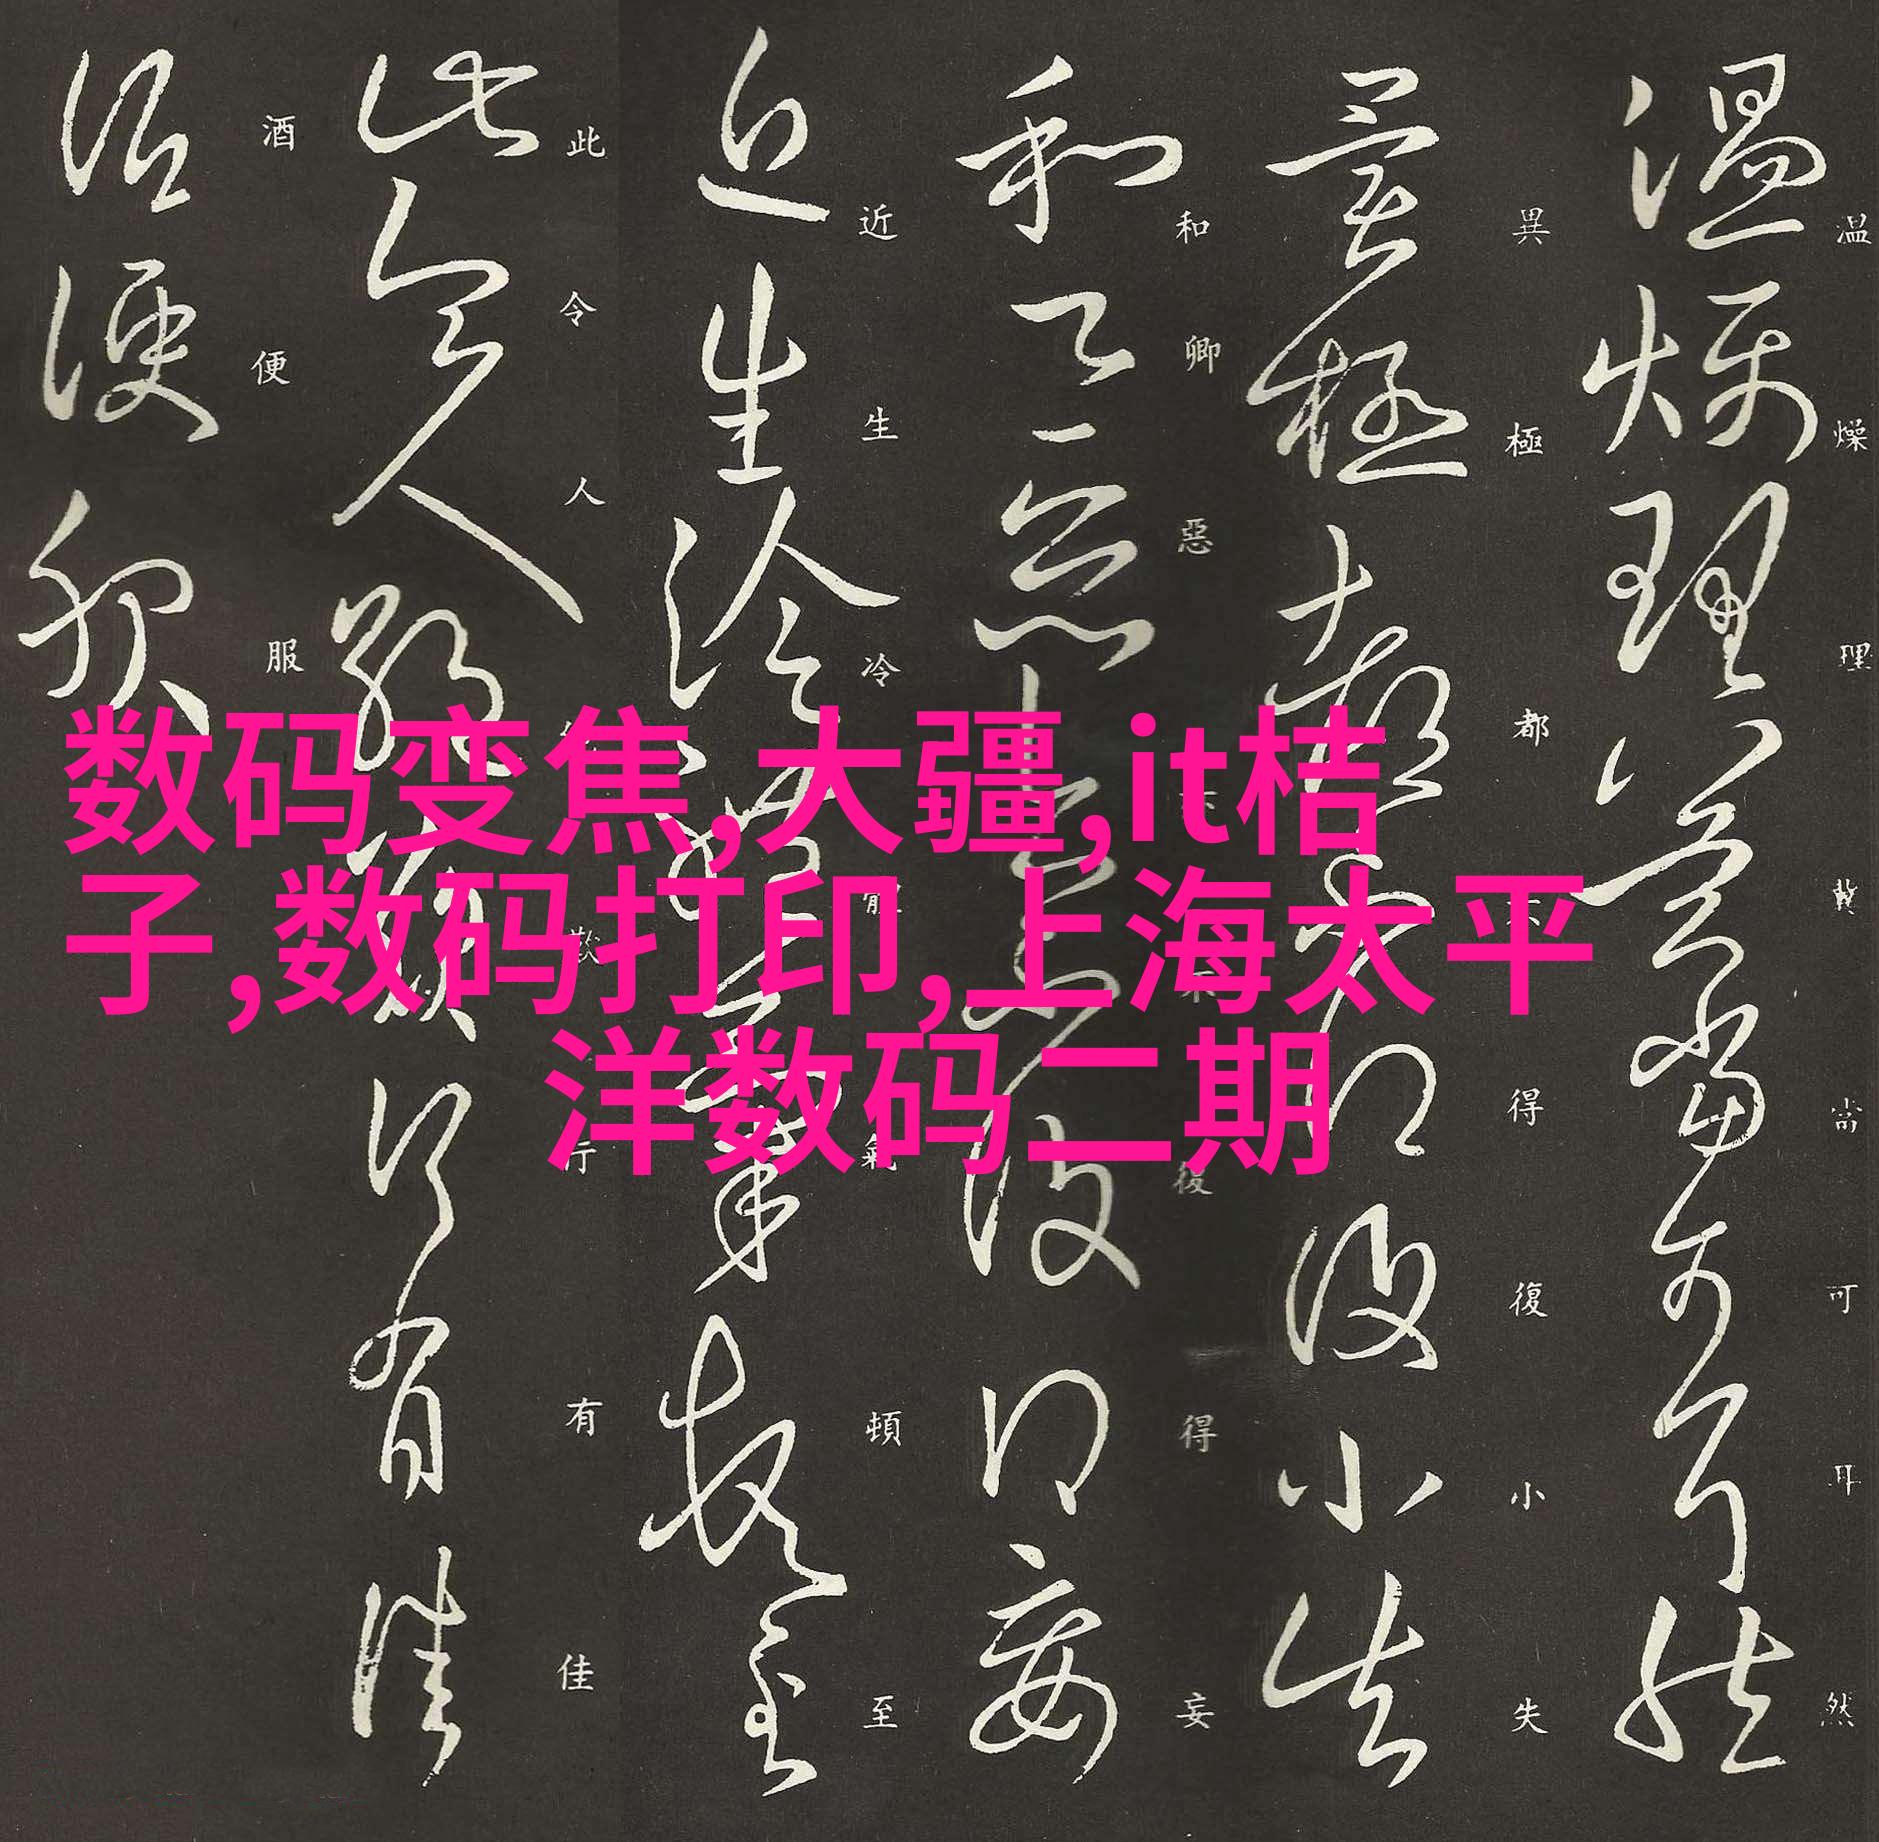 温燥理冀當可耳然
異極都不得復小失
和卿惡不得妄
近生冷體氣頓至
此令人欬行有佳
酒便服
数码变焦,大疆,it桔
子,数码打印,上海太平
洋数码二期